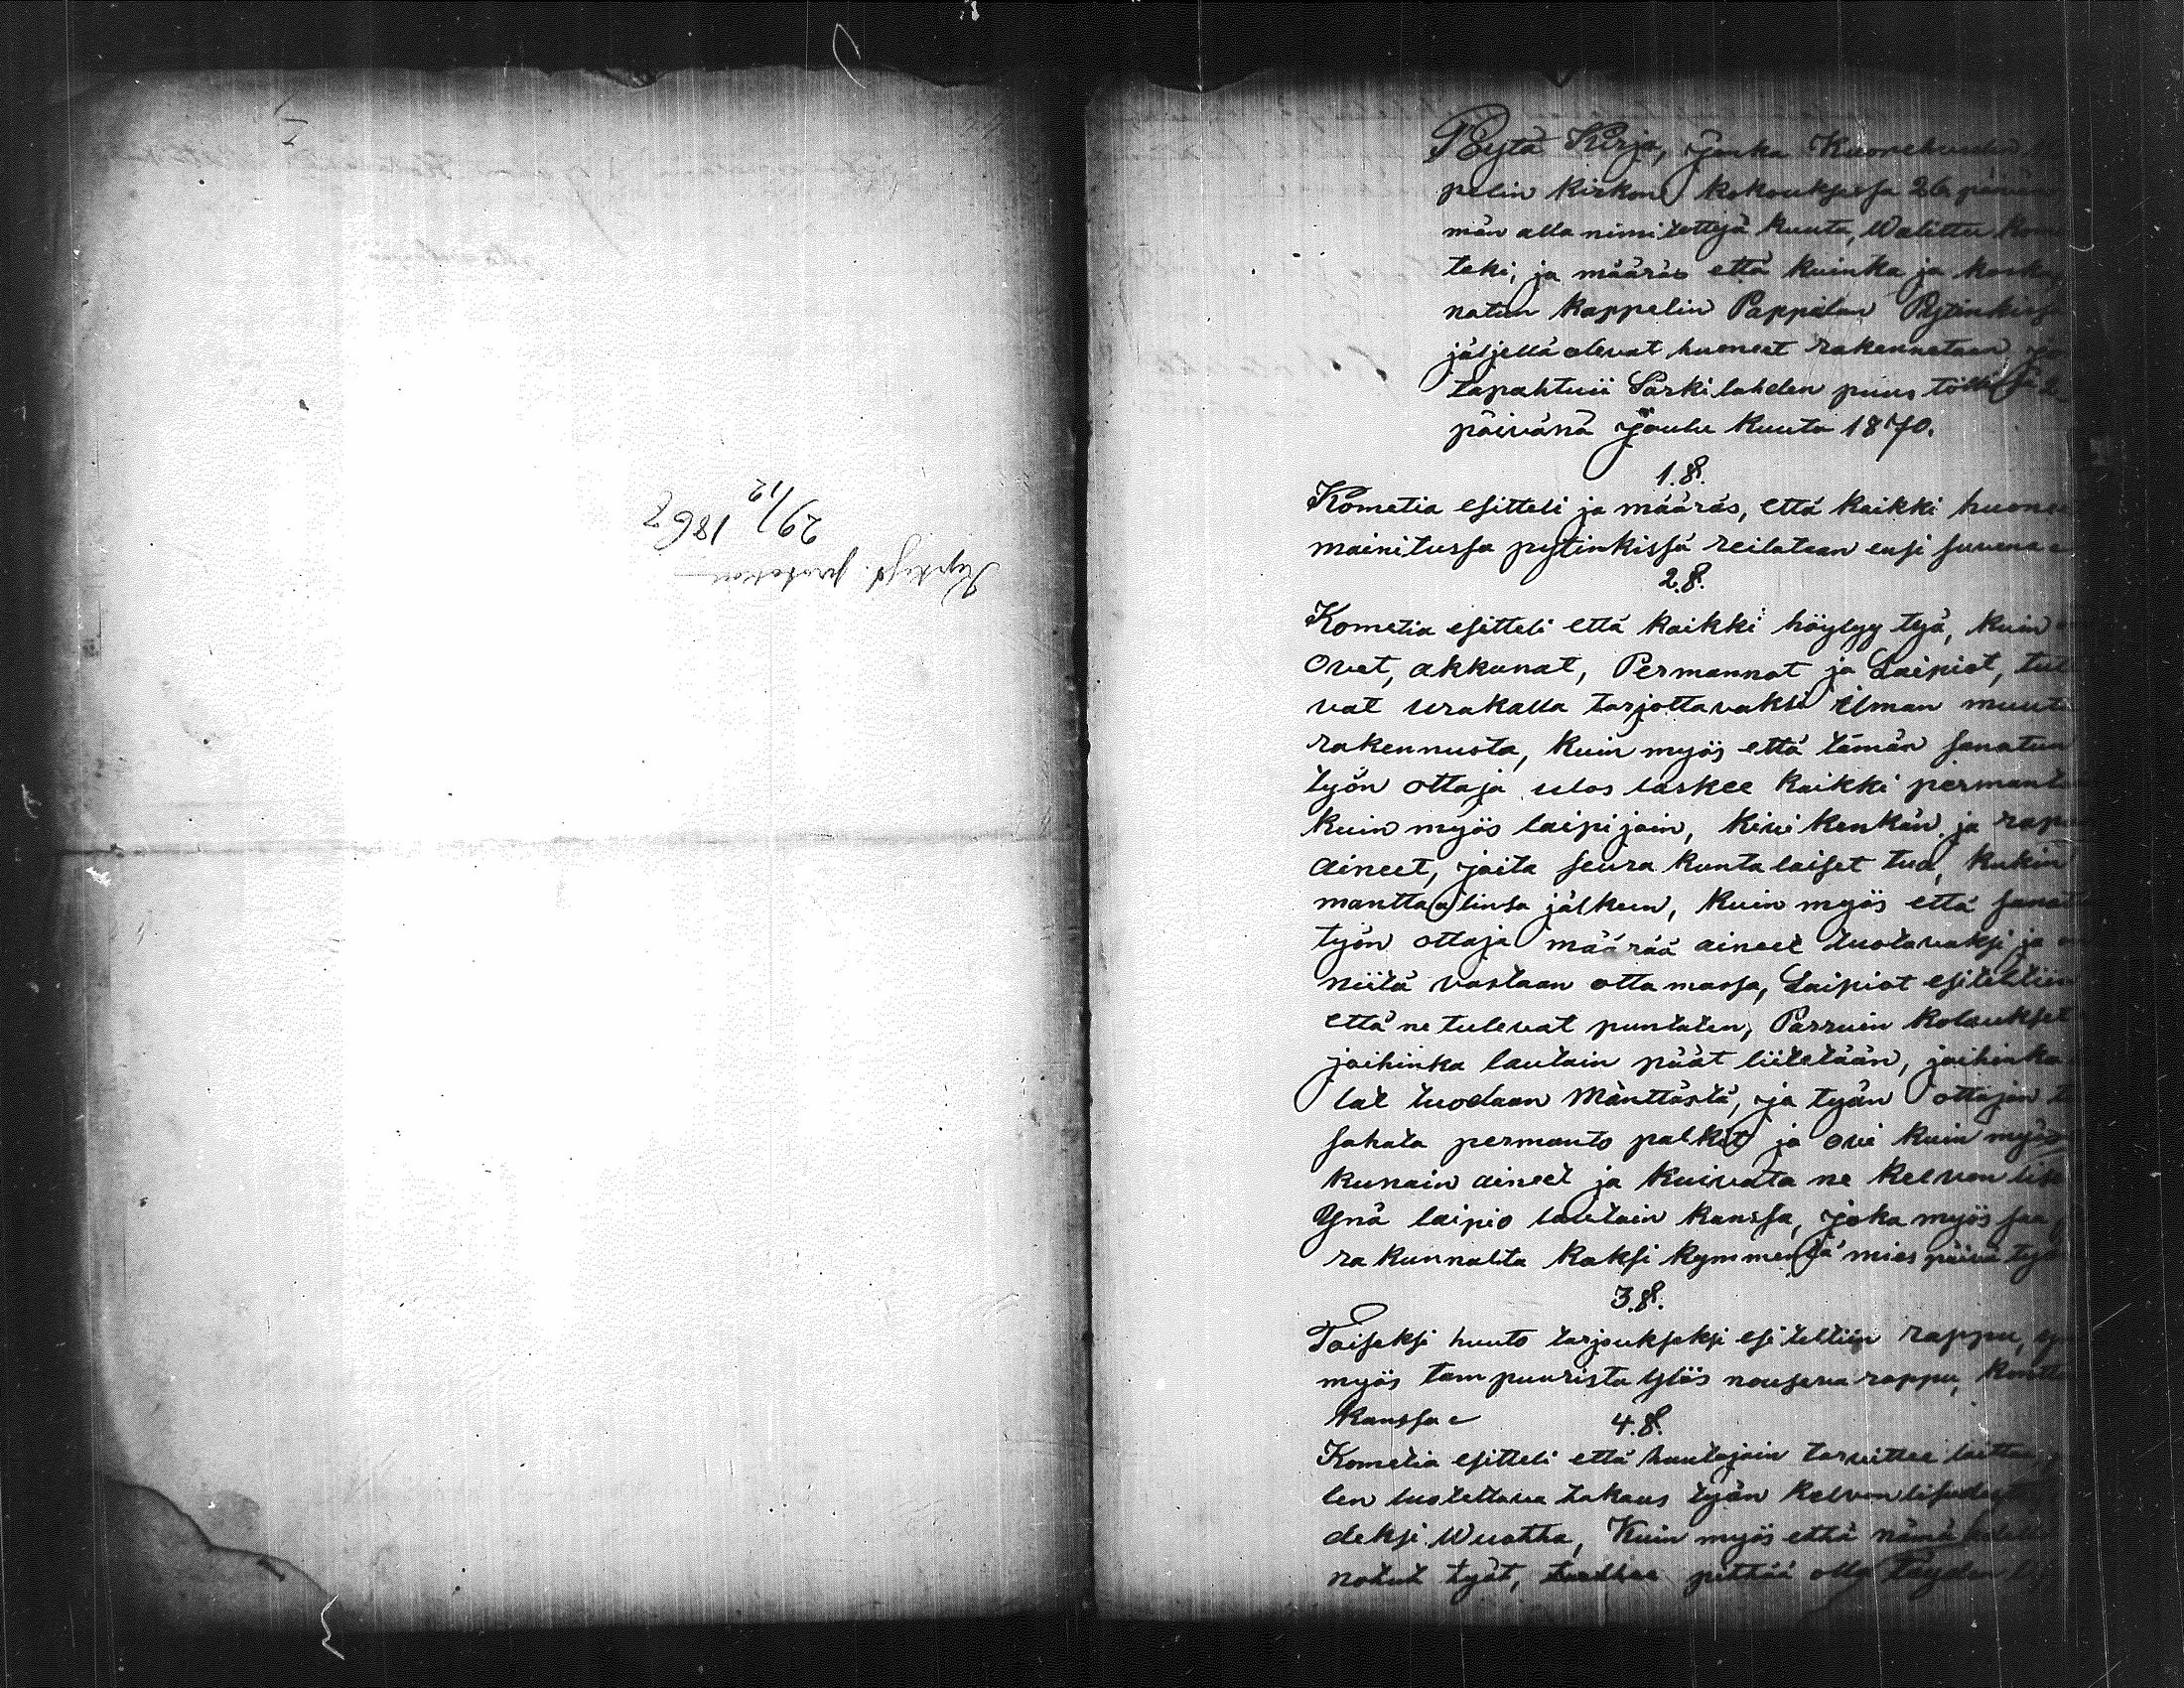 29/12 1867
Pöytä Kirja, jonka Kuorehveden
pelin kirkon kokouksessa 26 päivän
män alla nimitettyjä kuuta, Walittu Kom
teki, ja määräs että kuinka ja koska
natun kappelin Pappilan Pytinkissä
jäljellä olevat huoneet rakennetaan, jo
tapahtuii Särkilahden puus töllissä 2
päivänä Joulu kuuta 1870.
1.§.
Kometia esitteli ja määräs, että kaikki huonee
mainitussa pytinkissä reilataan ensi suvena
2.§.
Kometia esitteli että kaikki höylyy työ, kuin
Ovet, akkunat, Permannot ja Laipiot, tul
vat urakalla tarjottavaksi ilman muuta
rakennusta, kuin myös että tämän sanatun
työn ottaja ulos laskee kaikki permanto
kuin myös laipijoin, kivi kenkän ja rapu
aineet, joita seura kuntalaiset tua, kukin
manttaalinsa jälkeen, kuin myös että sanatu
työn ottaja määrää aineet tuotavaksi ja o
niitä vastaan ottamassa, Laipiot esiteltiin
että ne tulevat puntaten, Parruin kolaukset
joihinka lautain päät liitetään, joihinka
lat tuodaan Mänttästä, ja työn ottajan t
sahata permanto palkit ja ovi kuin myös
kunain aineet ja kuivata ne kelvon lise
Ynä laipio lautain kanssa, joka myös saa
rakunnalta kaksi kymmentä mies päivä työ
3.§.
Toiseksi huuto tarjoukseksi esiteltiin rappu,
myös tampuurista ylös nouseva rappu, kontto
kanssa
4.§.
Kometia esitteli että huutajain tarvittee laittaa
len luotettava takaus työn kelvon lisudest
deksi Wuotta, Kuin myös että nämä edell
notut työt, pittää olla Täyden